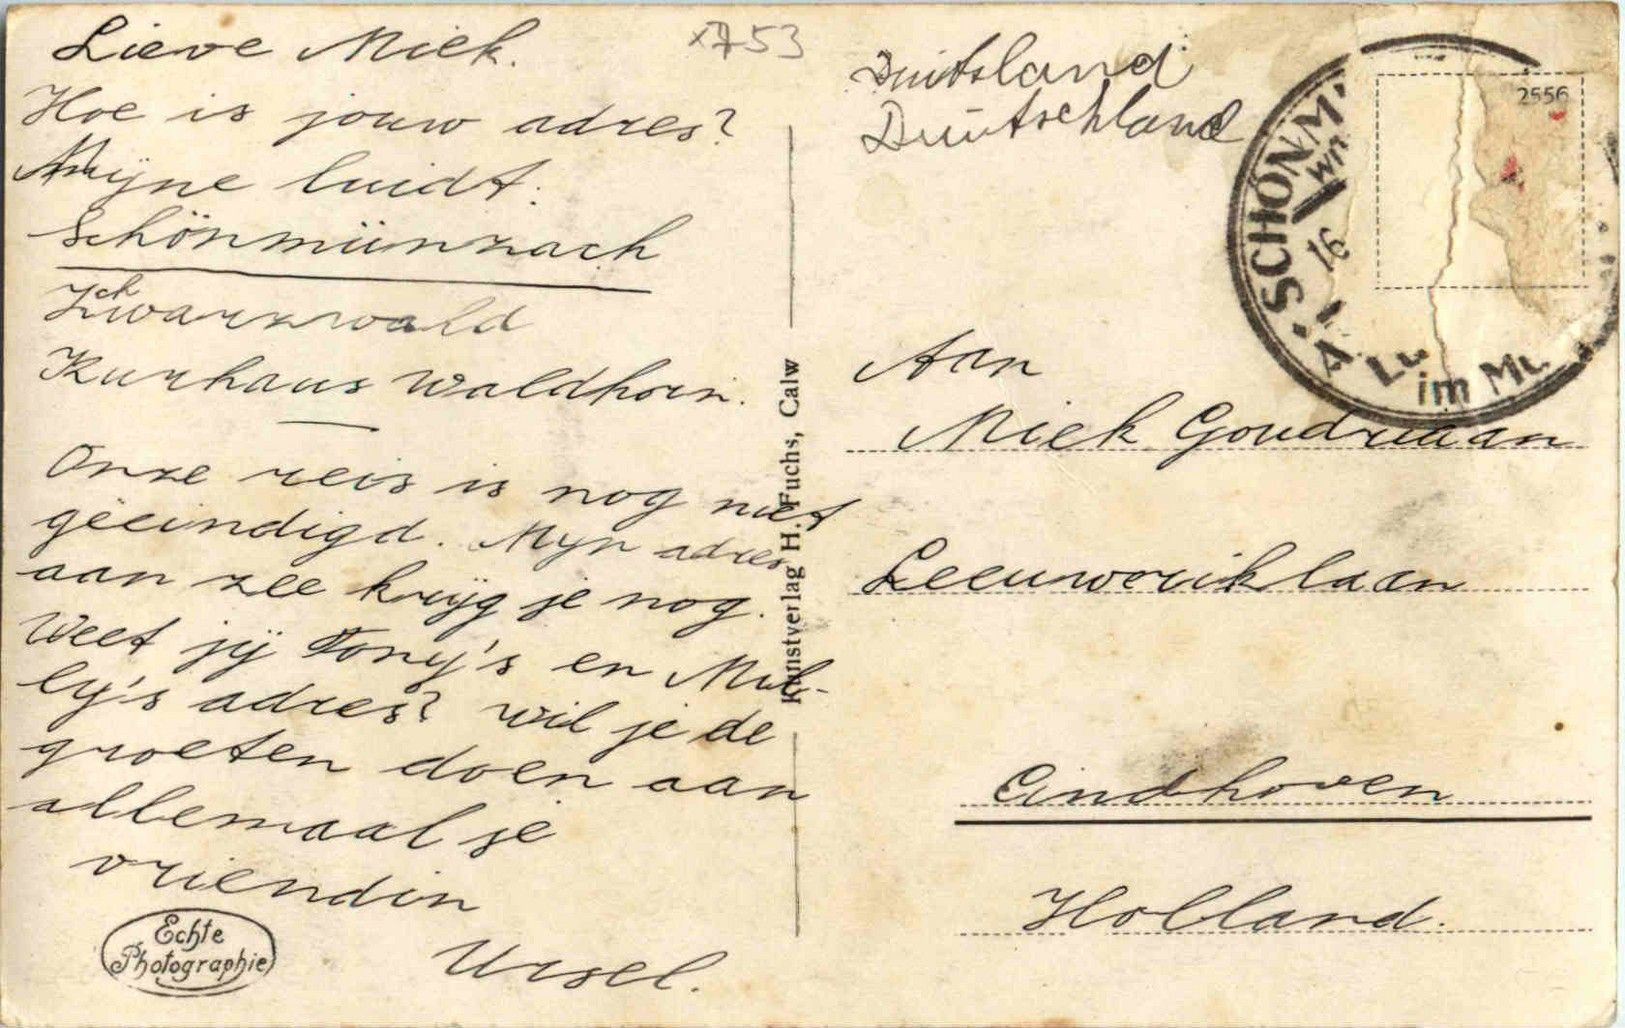 Lieve Miek.
Hoe is jouw adres?
Mijne luidt:
Schönmünzach
Schwarzwald
Kurhaus Waldhorn.
Onze reis is nog niet
geëindigd. Mijn adres
aan zee krijg je nog.
Weet jij Tony's en Mil-
ly's adres? Wil je de
groeten doen aan
allemaal je
vriendin
Ursel.
Echte
Photographie
Kunstverlag H. Fuchs, Calw
Duitsland
Deutschland
2556
SCHÖNM
16
im
Aan
Miek Goudriaan
Leeuweriklaan
Eindhoven
Holland.